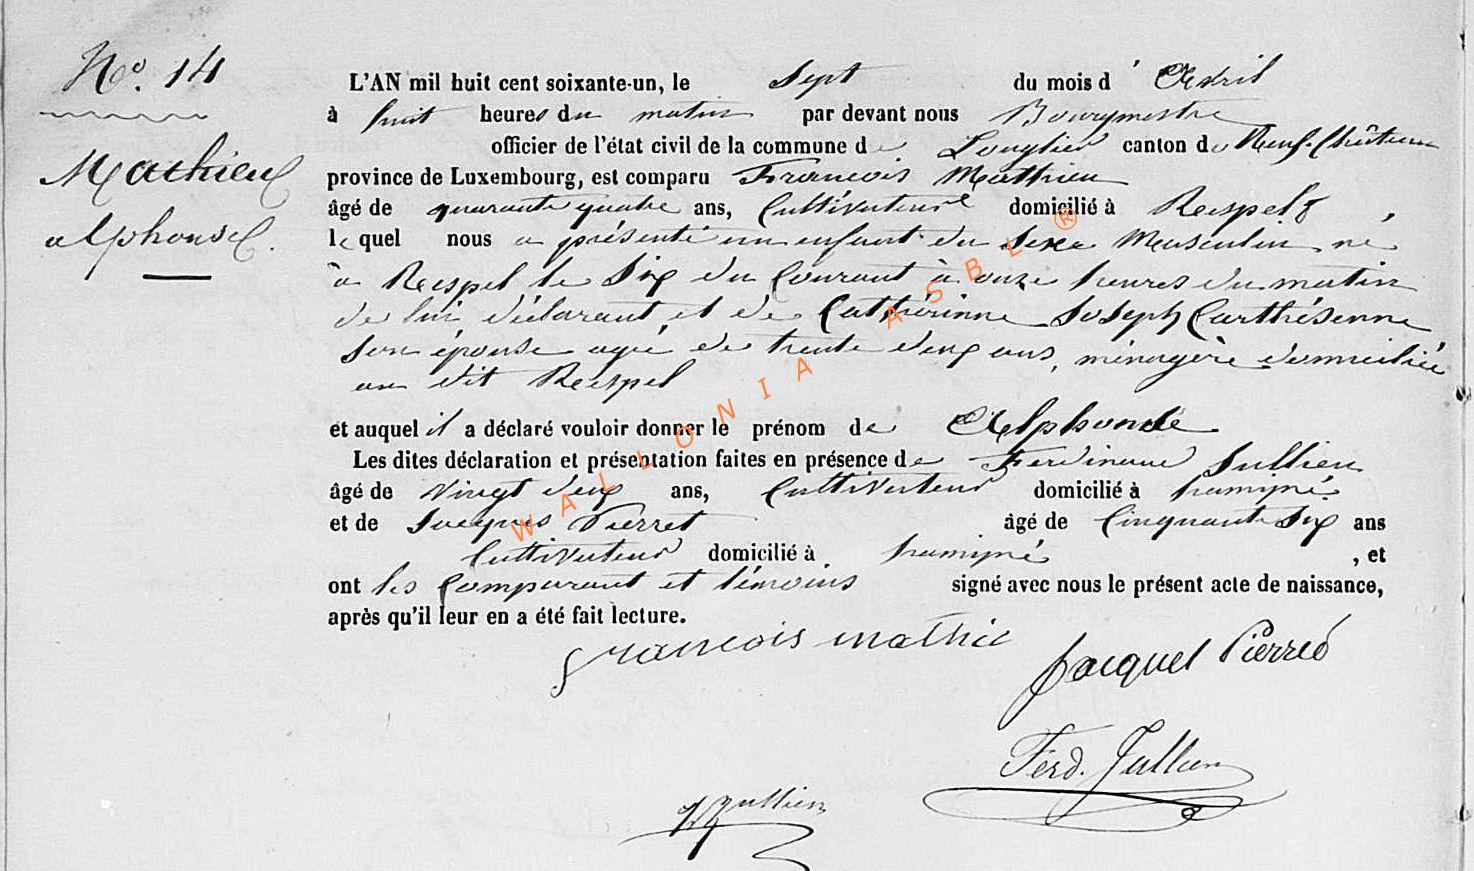 No. 14
Mathieu
alphonse.
L'AN mil huit cent soixante-un, le Sept du mois d' Avril
à huit heures du matin par devant nous Bourgmestre
officier de l'état civil de la commune de Longlier canton de Neuf-Château
province de Luxembourg, est comparu François Mathieu
âgé de quarante quatre ans, Cultivateur domicilié à Respelt,
le quel nous a présenté un enfant du Sexe Masculin né
à Respel le Six du Courant à onze heures du matin
de lui déclarant et de Cathérinne Joseph Carthésenne
Son épouse agée de trente deux ans, ménagère domiciliée
au dit Respel
et auquel il a déclaré vouloir donner le prénom de Alphonse
Les dites déclaration et présentation faites en présence de Ferdinand Jullien
âgé de Vingt deux ans, Cultivateur domicilié à hamipré
et de Jacques Pierret âgé de Cinquante Six ans
Cultivateur domicilié à hamipré, et
ont les Comparant et témoins signé avec nous le présent acte de naissance,
après qu'il leur en a été fait lecture.
françois mathie
Jacquet Pierred
Ferd. Jullien
Jullien
WALLONIA ASBL ®